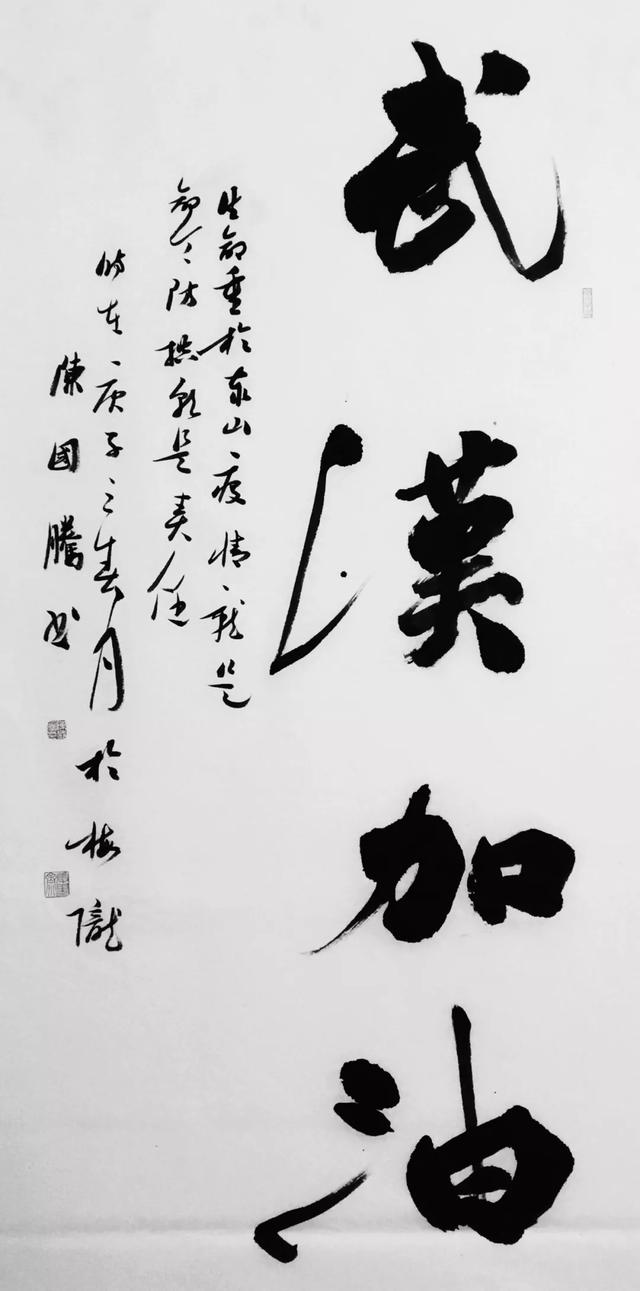 武漢加油
生命重於泰山疫情就是
命令防控就是責任
時在庚子之春月於梅隴
陳國騰书